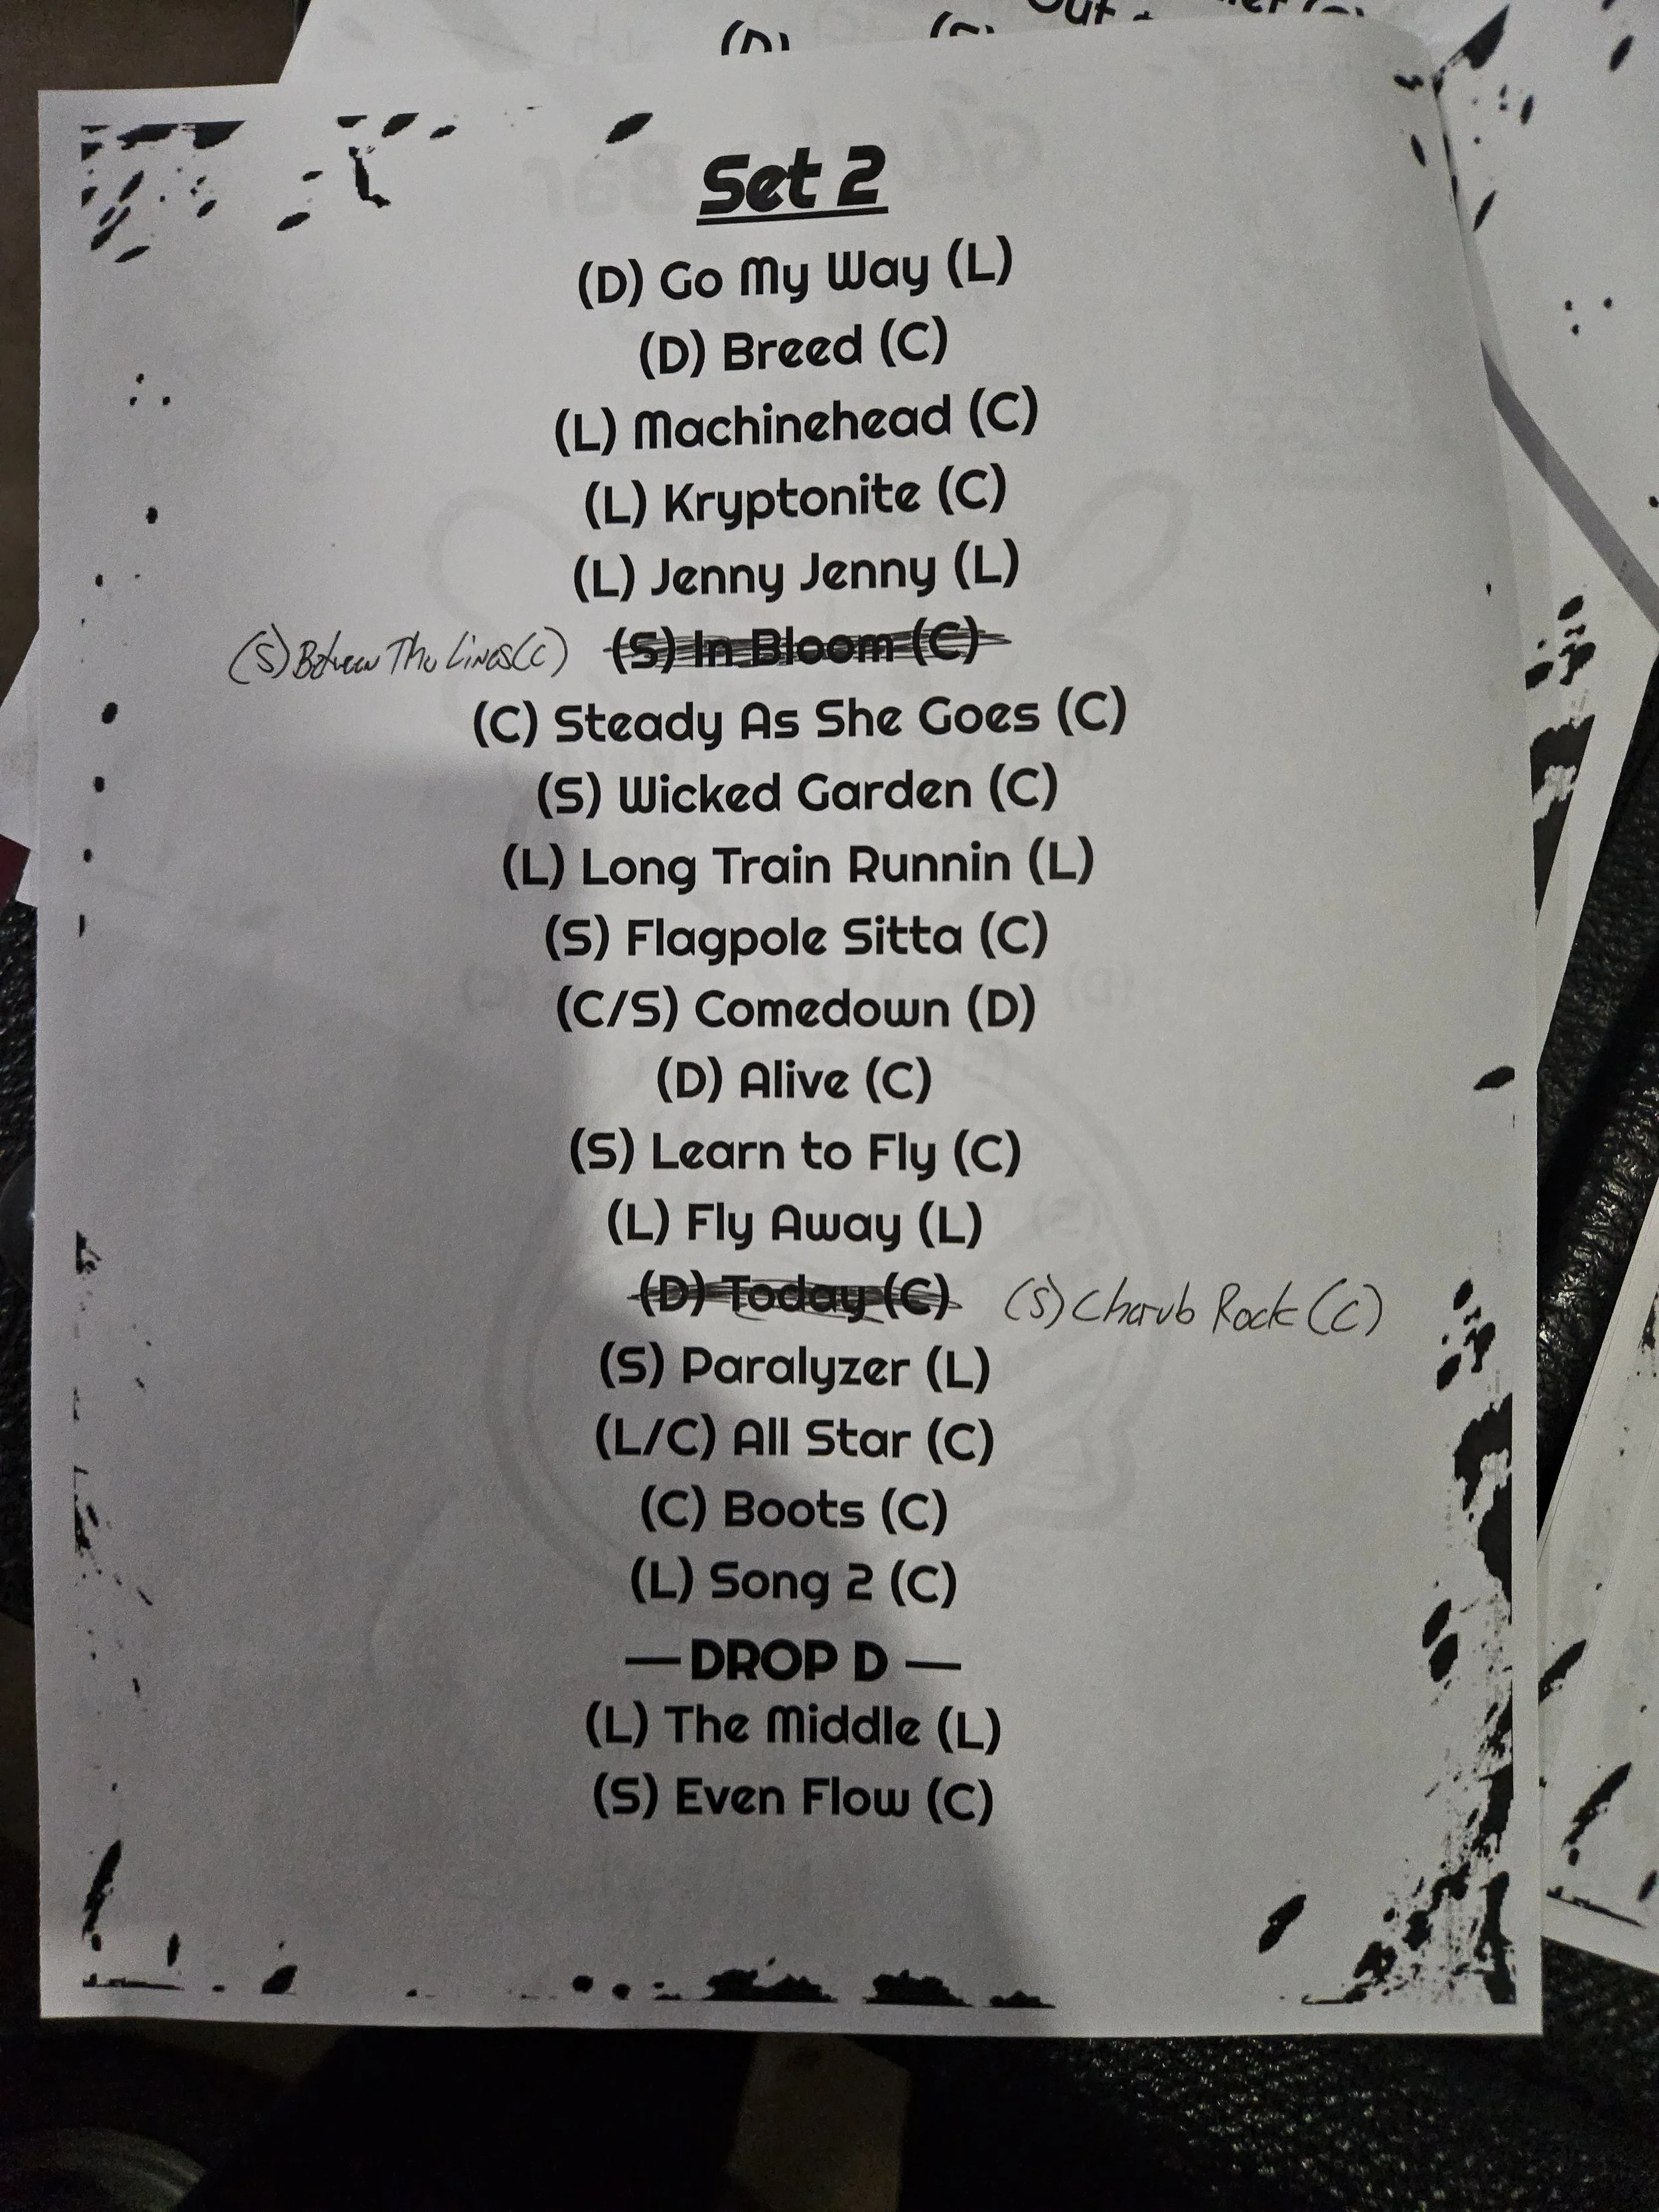 Set 2
(D) Go My Way (L)
(D) Breed (C)
(L) Machinehead (C)
(L) Kryptonite (C)
(L) Jenny Jenny (L)
(S) Between The Lines (C) (S) In Bloom (C)
(C) Steady As She Goes (C)
(S) Wicked Garden (C)
(L) Long Train Runnin (L)
(S) Flagpole Sitta (C)
(C/S) Comedown (D)
(D) Alive (C)
(S) Learn to Fly (C)
(L) Fly Away (L)
(D) Today (C) (S) Cherub Rock (C)
(S) Paralyzer (L)
(L/C) All Star (C)
(C) Boots (C)
(L) Song 2 (C)
— DROP D —
(L) The Middle (L)
(S) Even Flow (C)